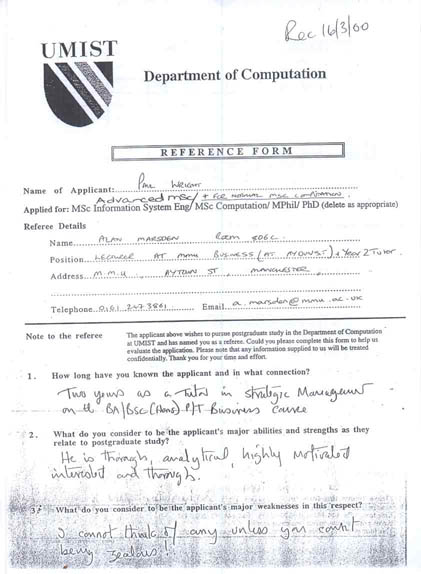 Rec 16/3/00
UMIST
Department of Computation
REFERENCE FORM
Name of Applicant: Paul Wright
Advanced MSc/ + for normal MSc Computation.
Applied for: MSc Information System Eng/ MSc Computation/ MPhil/ PhD (delete as appropriate)
Referee Details
Name ALAN MARSDEN Room 806C
Position LECTURER AT MMU BUSINESS (AT AYTOUN ST) + Year 2 Tutor.
Address M.M.U, AYTOUN ST, MANCHESTER,
Telephone 0161 247 3861 Email a.marsden@mmu.ac.uk
Note to the referee
The applicant above wishes to pursue postgraduate study in the Department of Computation
at UMIST and has named you as a referee. Could you please complete this form to help us
evaluate the application. Please note that any information supplied to us will be treated
confidentially. Thank you for your time and effort.
1. How long have you known the applicant and in what connection?
Two years as a Tutor in Strategic Management
on the BA/BSc (Hons) P/T Business course
2. What do you consider to be the applicant's major abilities and strengths as they
relate to postgraduate study?
He is thorough, analytical, highly motivated
interested and through.
3. What do you consider to be the applicant's major weaknesses in this respect?
I cannot think of any unless you count
being zealous!